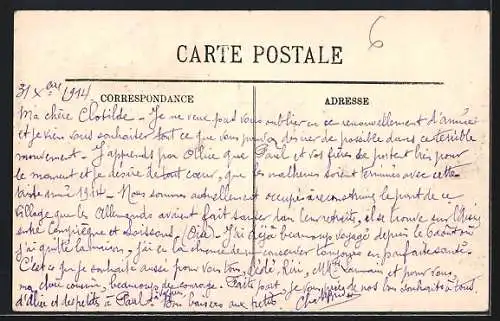 6
CARTE POSTALE
31 Xbre 1914
CORRESPONDANCE
ADRESSE
Ma chère Clotilde - Je ne veux pas vous oublier en ce renouvellement d'année
et je viens vous souhaiter tout ce que vous pouvez désirer de possible dans ce terrible
mouvement. J'apprends par Ollie que Paul et vos frères se portent bien pour
le moment et je désire de tout cœur, que les malheurs soient terminés avec cette
année 1914 - Nous sommes actuellement occupés à reconstruire le pont de ce
village que les Allemands avaient fait sauter dans leur retraite, il se trouve sur l'Aisne
entre Compiègne et Soissons (Oise). J'ai déjà beaucoup voyagé depuis le 6 août où
j'ai quitté la maison, j'ai eu la chance de me conserver toujours en parfaite santé.
C'est ce que je souhaite aussi pour vous tous, Dédé, Riri, Mme et pour vous,
ma chère cousine, beaucoup de courage. Faites part, je vous prie, de nos bons souhaits à tous
d'Alice et des petits à Paul. Bons baisers aux petits.